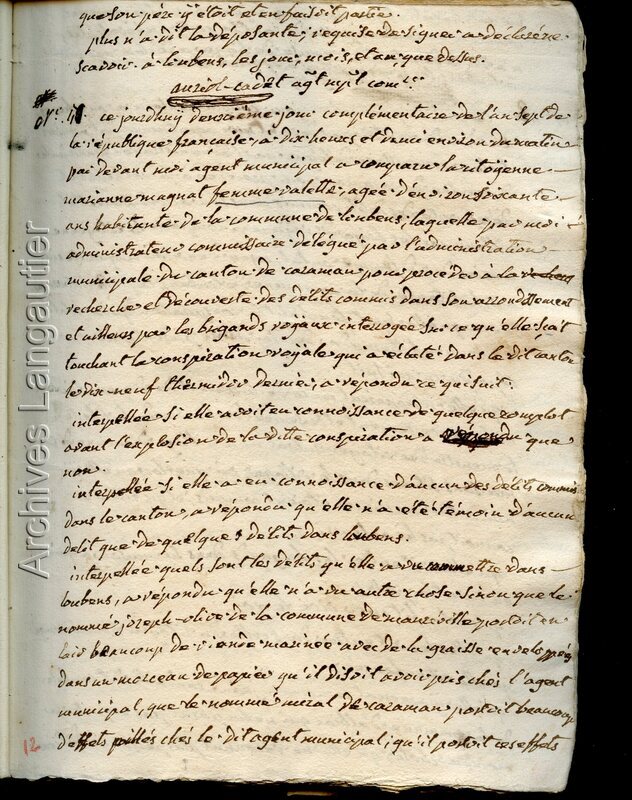 que son père y étoit et en faisoit partie.
plus n'a dit la déposante, requise de signer a déclaré ne
scavoir. a loubens, les jour, mois, et an que dessus.
auriol-cadet agt mpl comre
ce jourdhuy deuxième jour complémentaire de l'an sept de
la république française, à dix heures et demi environ du matin
par devant moi agent municipal a comparu la citoyenne
marianne magnat femme valette, agée d'environ soixante
ans habitante de la commune de loubens, laquelle par moi
administrateur commissaire délégué par l'administration
municipale du canton de caraman pour proceder a la
recherche et découverte des délits commis dans son arrondissement
et ailleurs par les brigands royaux interrogée sur ce qu'elle scait
touchant la conspiration royale qui a éclaté dans le dit canton
le dix-neuf thermidor dernier, a répondu ce qui suit.
interpellée si elle avoit eu connoissance de quelque complot
avant l'explosion de la ditte conspiration a répondu que
non.
interpellée si elle a eu connoissance d'aucun des délits commis
dans le canton, a répondu qu'elle n'a été témoin d'aucun
délit que de quelques délits dans loubens.
interpellée quels sont les délits qu'elle a vu commettre dans
loubens, a répondu qu'elle n'a vu autre chose sinon que le
nommé joseph olive de la commune de maureville portoit en
laid beaucoup de viande marinée avec de la graisse enveloppée
dans un morceau de papier qu'il disoit avoir pris chés l'agent
municipal, que le nommé miral de caraman portoit beaucoup
d'effets pillés chés le dit agent municipal; qu'il portoit ces effets
12
Archives Langautier